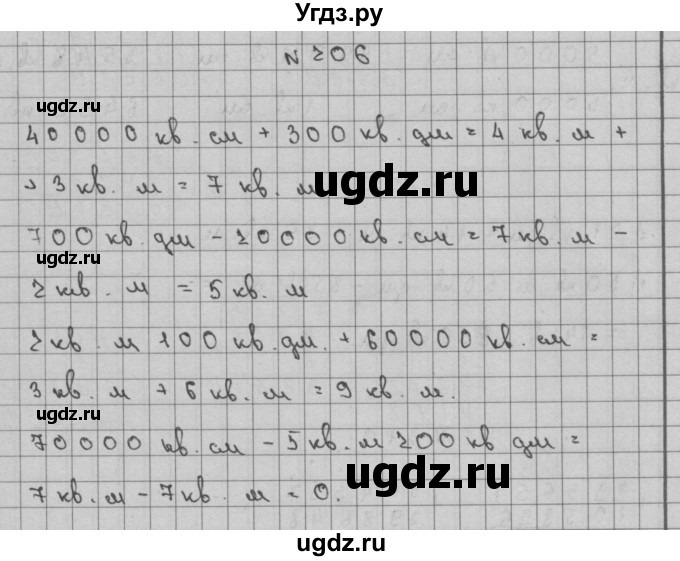 Угдз.ру
N 206
ugdz.ru
40000 кв. см + 300 кв. дм = 4 кв. м +
3 кв. м = 7 кв. м
ugdz.ru
700 кв. дм - 20000 кв. см = 7 кв. м -
ugdz.ru
2 кв. м = 5 кв. м
2 кв. м 100 кв. дм. + 60000 кв. см =
3 кв. м + 6 кв. м = 9 кв. м.
ugdz.ru
70000 кв. см - 5 кв. м 200 кв дм =
ugdz.ru
7 кв. м - 7 кв. м = 0.
ugdz.ru